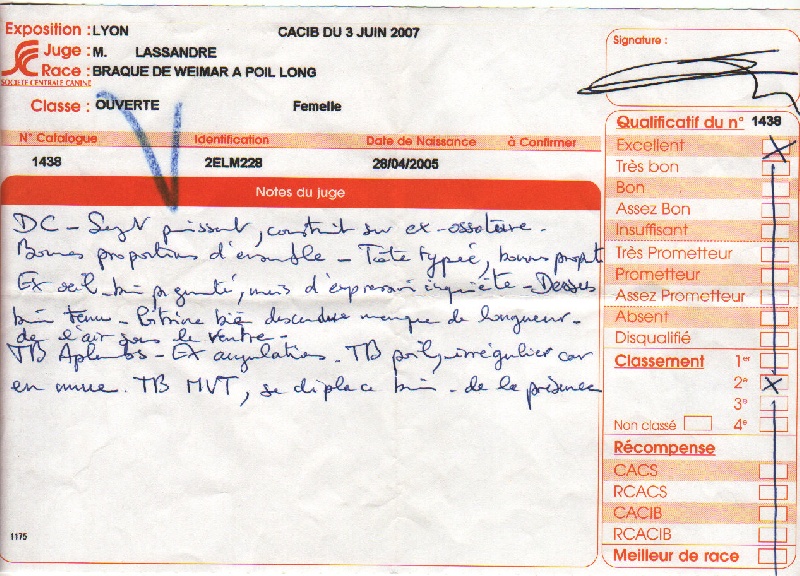 Exposition : LYON CACIB DU 3 JUIN 2007
Juge : M. LASSANDRE
Race : BRAQUE DE WEIMAR A POIL LONG
SOCIETE CENTRALE CANINE
Classe : OUVERTE Femelle
N° Catalogue Identification Date de Naissance à Confirmer
1438 2ELM228 28/04/2005
Notes du juge
DC - Sujet puissant, construit sur ex-ossature -
Bonnes proportions d'ensemble - Tête typée, bonnes
Ex oeil bien pigmenté, mais d'expression inquiète - Dessus
bien tenu - Poitrine bien descendue manque de longueur -
de l'air sous le ventre -
TB Aplombs - Ex angulations - TB poil, irrégulier car
en mue. TB MVT, se déplace bien - de la présence
1175
Signature :
Qualificatif du n° 1438
Excellent
Très bon
Bon
Assez Bon
Insuffisant
Très Prometteur
Prometteur
Assez Prometteur
Absent
Disqualifié
Classement 1er
2e
3e
Non classé 4e
Récompense
CACS
RCACS
CACIB
RCACIB
Meilleur de race